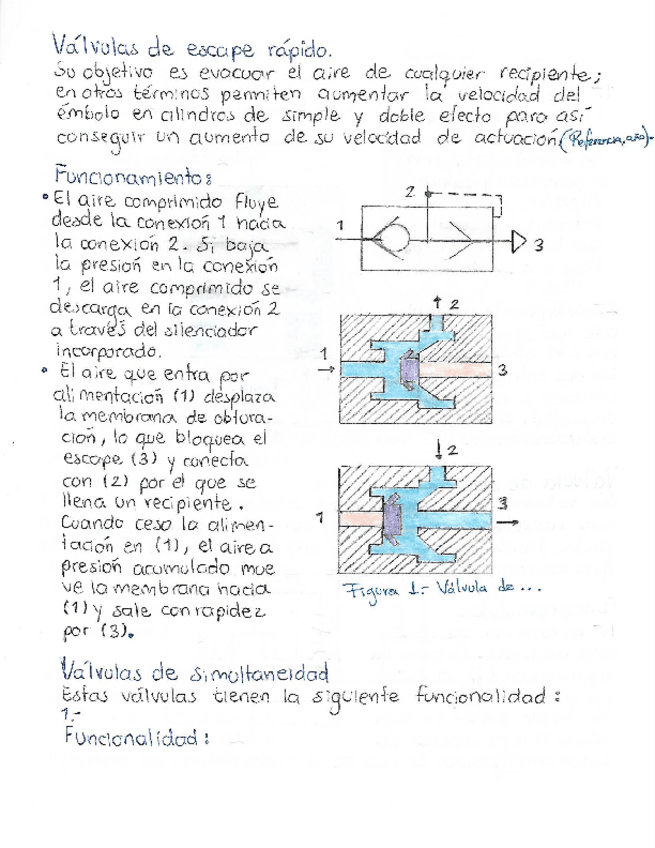 Válvulas de escape rápido.
Su objetivo es evacuar el aire de cualquier recipiente;
en otros términos permiten aumentar la velocidad del
émbolo en cilindros de simple y doble efecto para así
conseguir un aumento de su velocidad de actuación (Referencia, año).
Funcionamiento:
• El aire comprimido fluye
desde la conexión 1 hacia
la conexión 2. Si baja
la presión en la conexión
1, el aire comprimido se
descarga en la conexión 2
a través del silenciador
incorporado.
• El aire que entra por
alimentación (1) desplaza
la membrana de obtura-
ción, lo que bloquea el
escape (3) y conecta
con (2) por el que se
llena un recipiente.
Cuando cesa la alimen-
tación en (1), el aire a
presión acumulado mue
ve la membrana hacia
(1) y sale con rapidez
por (3).
2
1
3
2
1
3
2
1
3
Figura 1.- Válvula de ...
Válvulas de simultaneidad
Estas válvulas tienen la siguiente funcionalidad:
1.-
Funcionalidad: